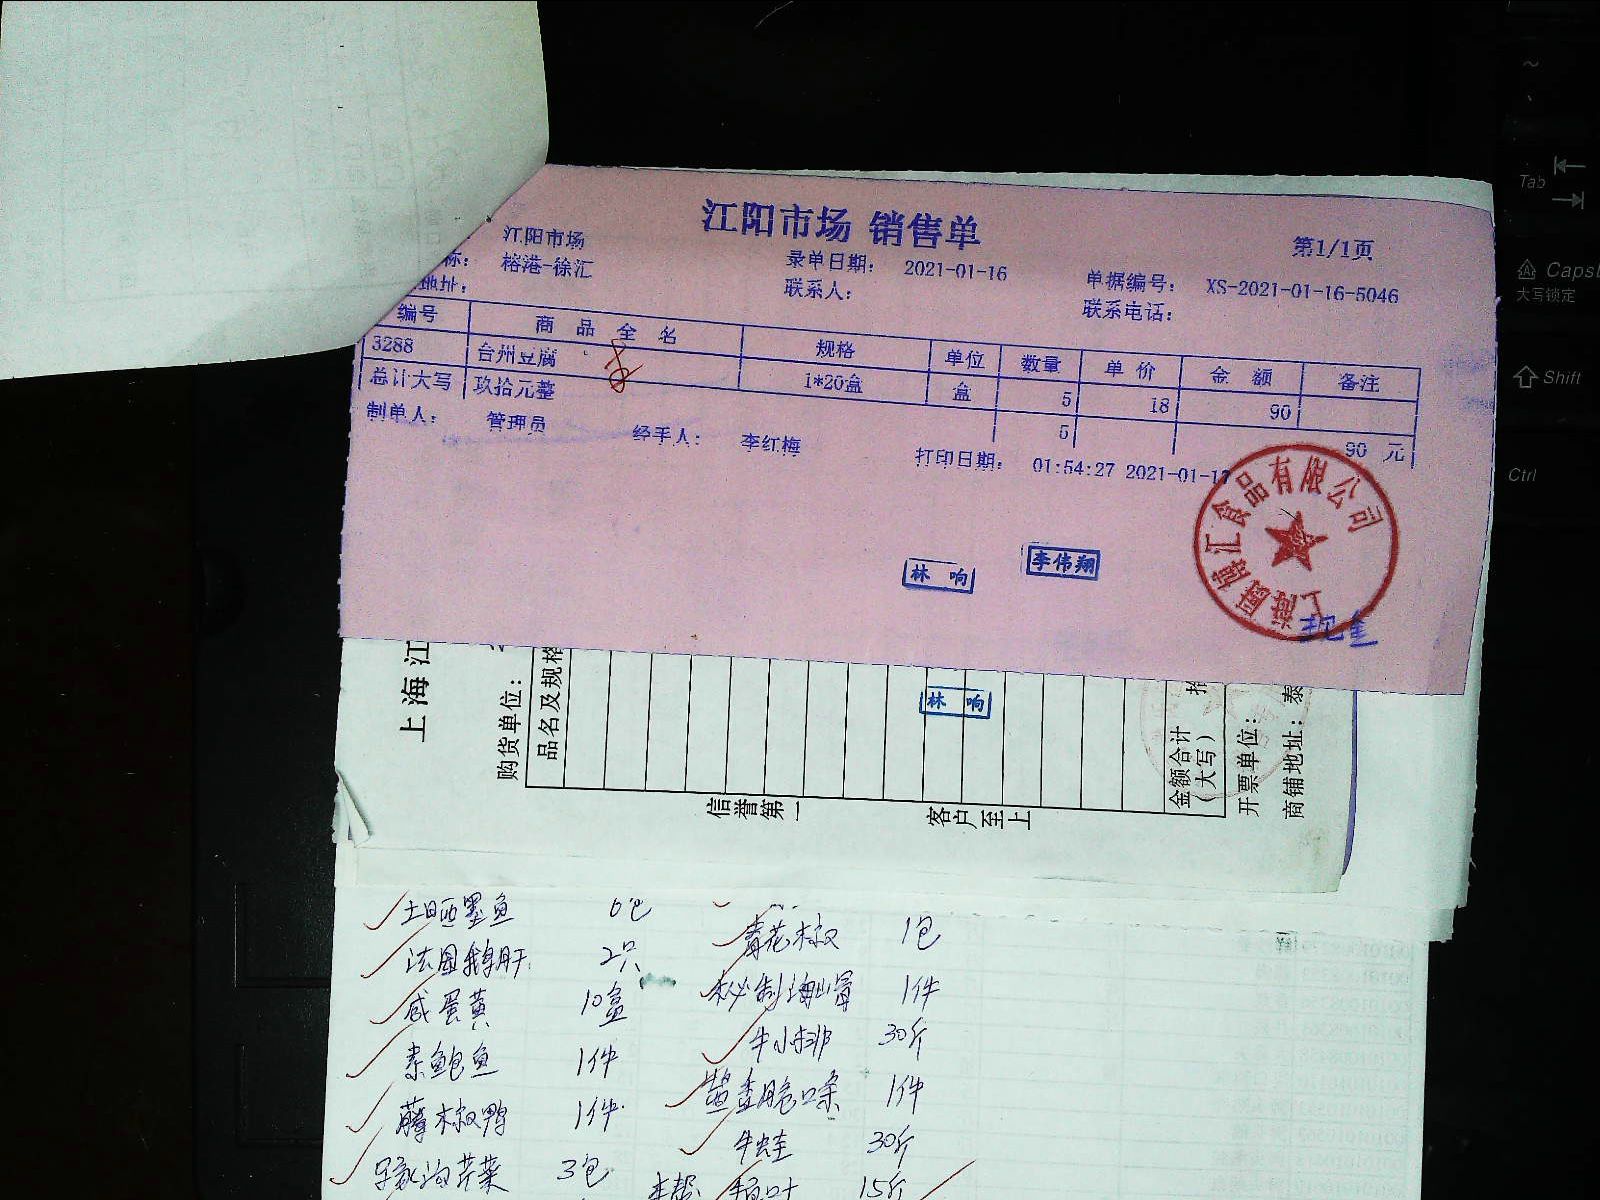 江阳市场 销售单
江阳市场
第1/1页
称： 榕港-徐汇 录单日期： 2021-01-16 单据编号： XS-2021-01-16-5046
地址： 联系人： 联系电话：
编号 商品全名 规格 单位 数量 单价 金额 备注
3288 台州豆腐 1*20盒 盒 5 18 90
总计大写 玖拾元整 5 90 元
制单人： 管理员 经手人： 李红梅 打印日期： 01:54:27 2021-01-17
林响 李伟翔
海汇食品有限公司
上海江
购货单位：
品名及规格
林响
金额合计
（大写）
开票单位：
商铺地址：泰
信誉第一 客户至上
土晒墨鱼 6包 青花椒 1包
法国鹅肝 2只 秘制海山宝 1件
咸蛋黄 10盒 牛小排 30斤
素鲍鱼 1件 1件
藤椒鸭 1件 牛蛙 30斤
芹菜 3包 15斤
Tab
Caps
大写锁定
Shift
Ctrl